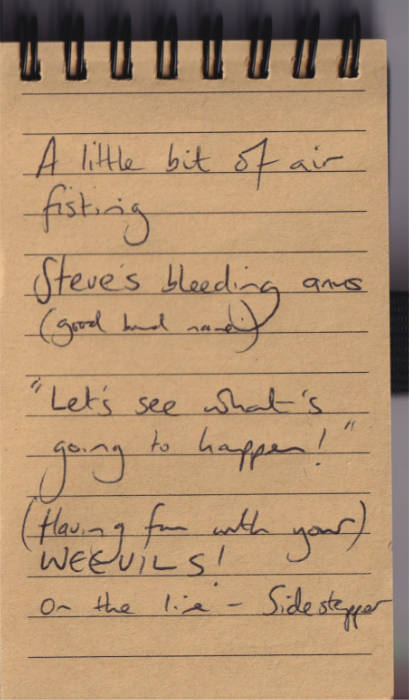 A little bit of air
fisting
Steve's bleeding anus
(good band name!)
"Let's see what's
going to happen!"
(Having fun with your)
WEEVILS!
On the lie - Sidestepper